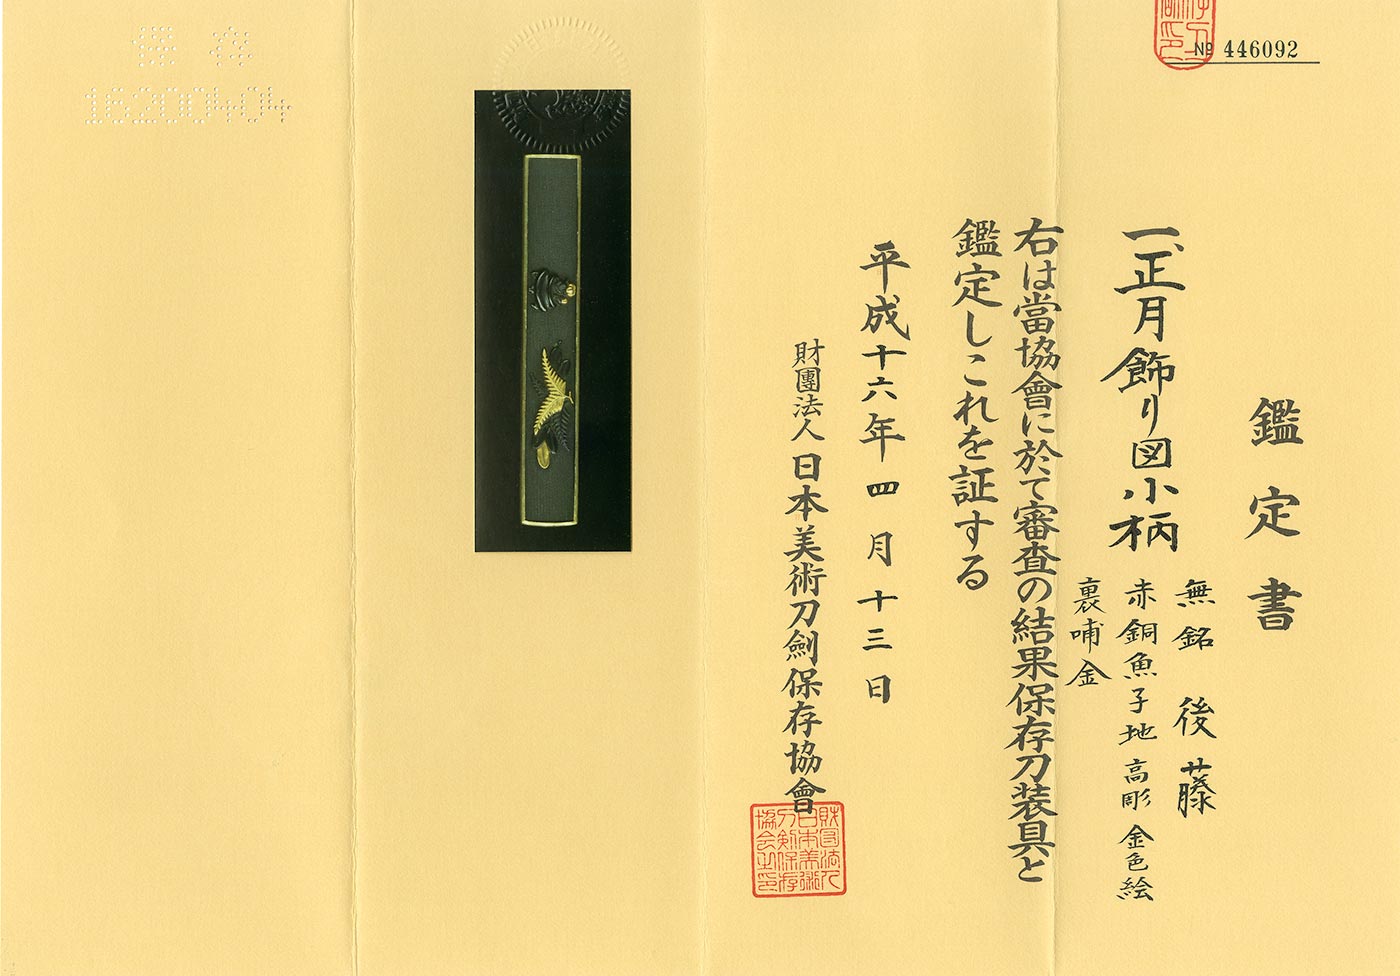 № 446092
鑑定書
一、正月飾り図小柄
無銘 後藤
赤銅魚子地 高彫 金色絵
裏哺金
右は當協會に於て審査の結果保存刀装具と
鑑定しこれを証する
平成十六年四月十三日
財團法人日本美術刀劍保存協會
財団法人
日本美術
刀剣保存
協会之印
保存
16200404